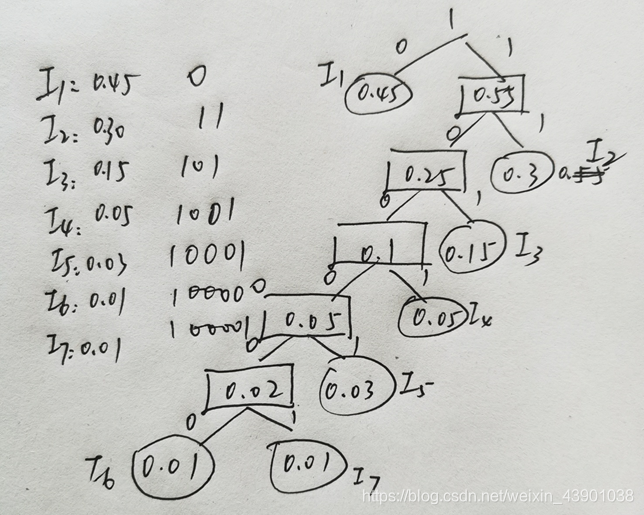 I1: 0.45 0
I2: 0.30 11
I3: 0.15 101
I4: 0.05 1001
I5: 0.03 10001
I6: 0.01 100000
I7: 0.01 100001
1
0 1
I1 0.45 0.55
0 1
0.25 0.3 I2
0 1
0.1 0.15 I3
0 1
0.05 0.05 I4
0 1
0.02 0.03 I5
0 1
I6 0.01 0.01 I7
https://blog.csdn.net/weixin_43901038